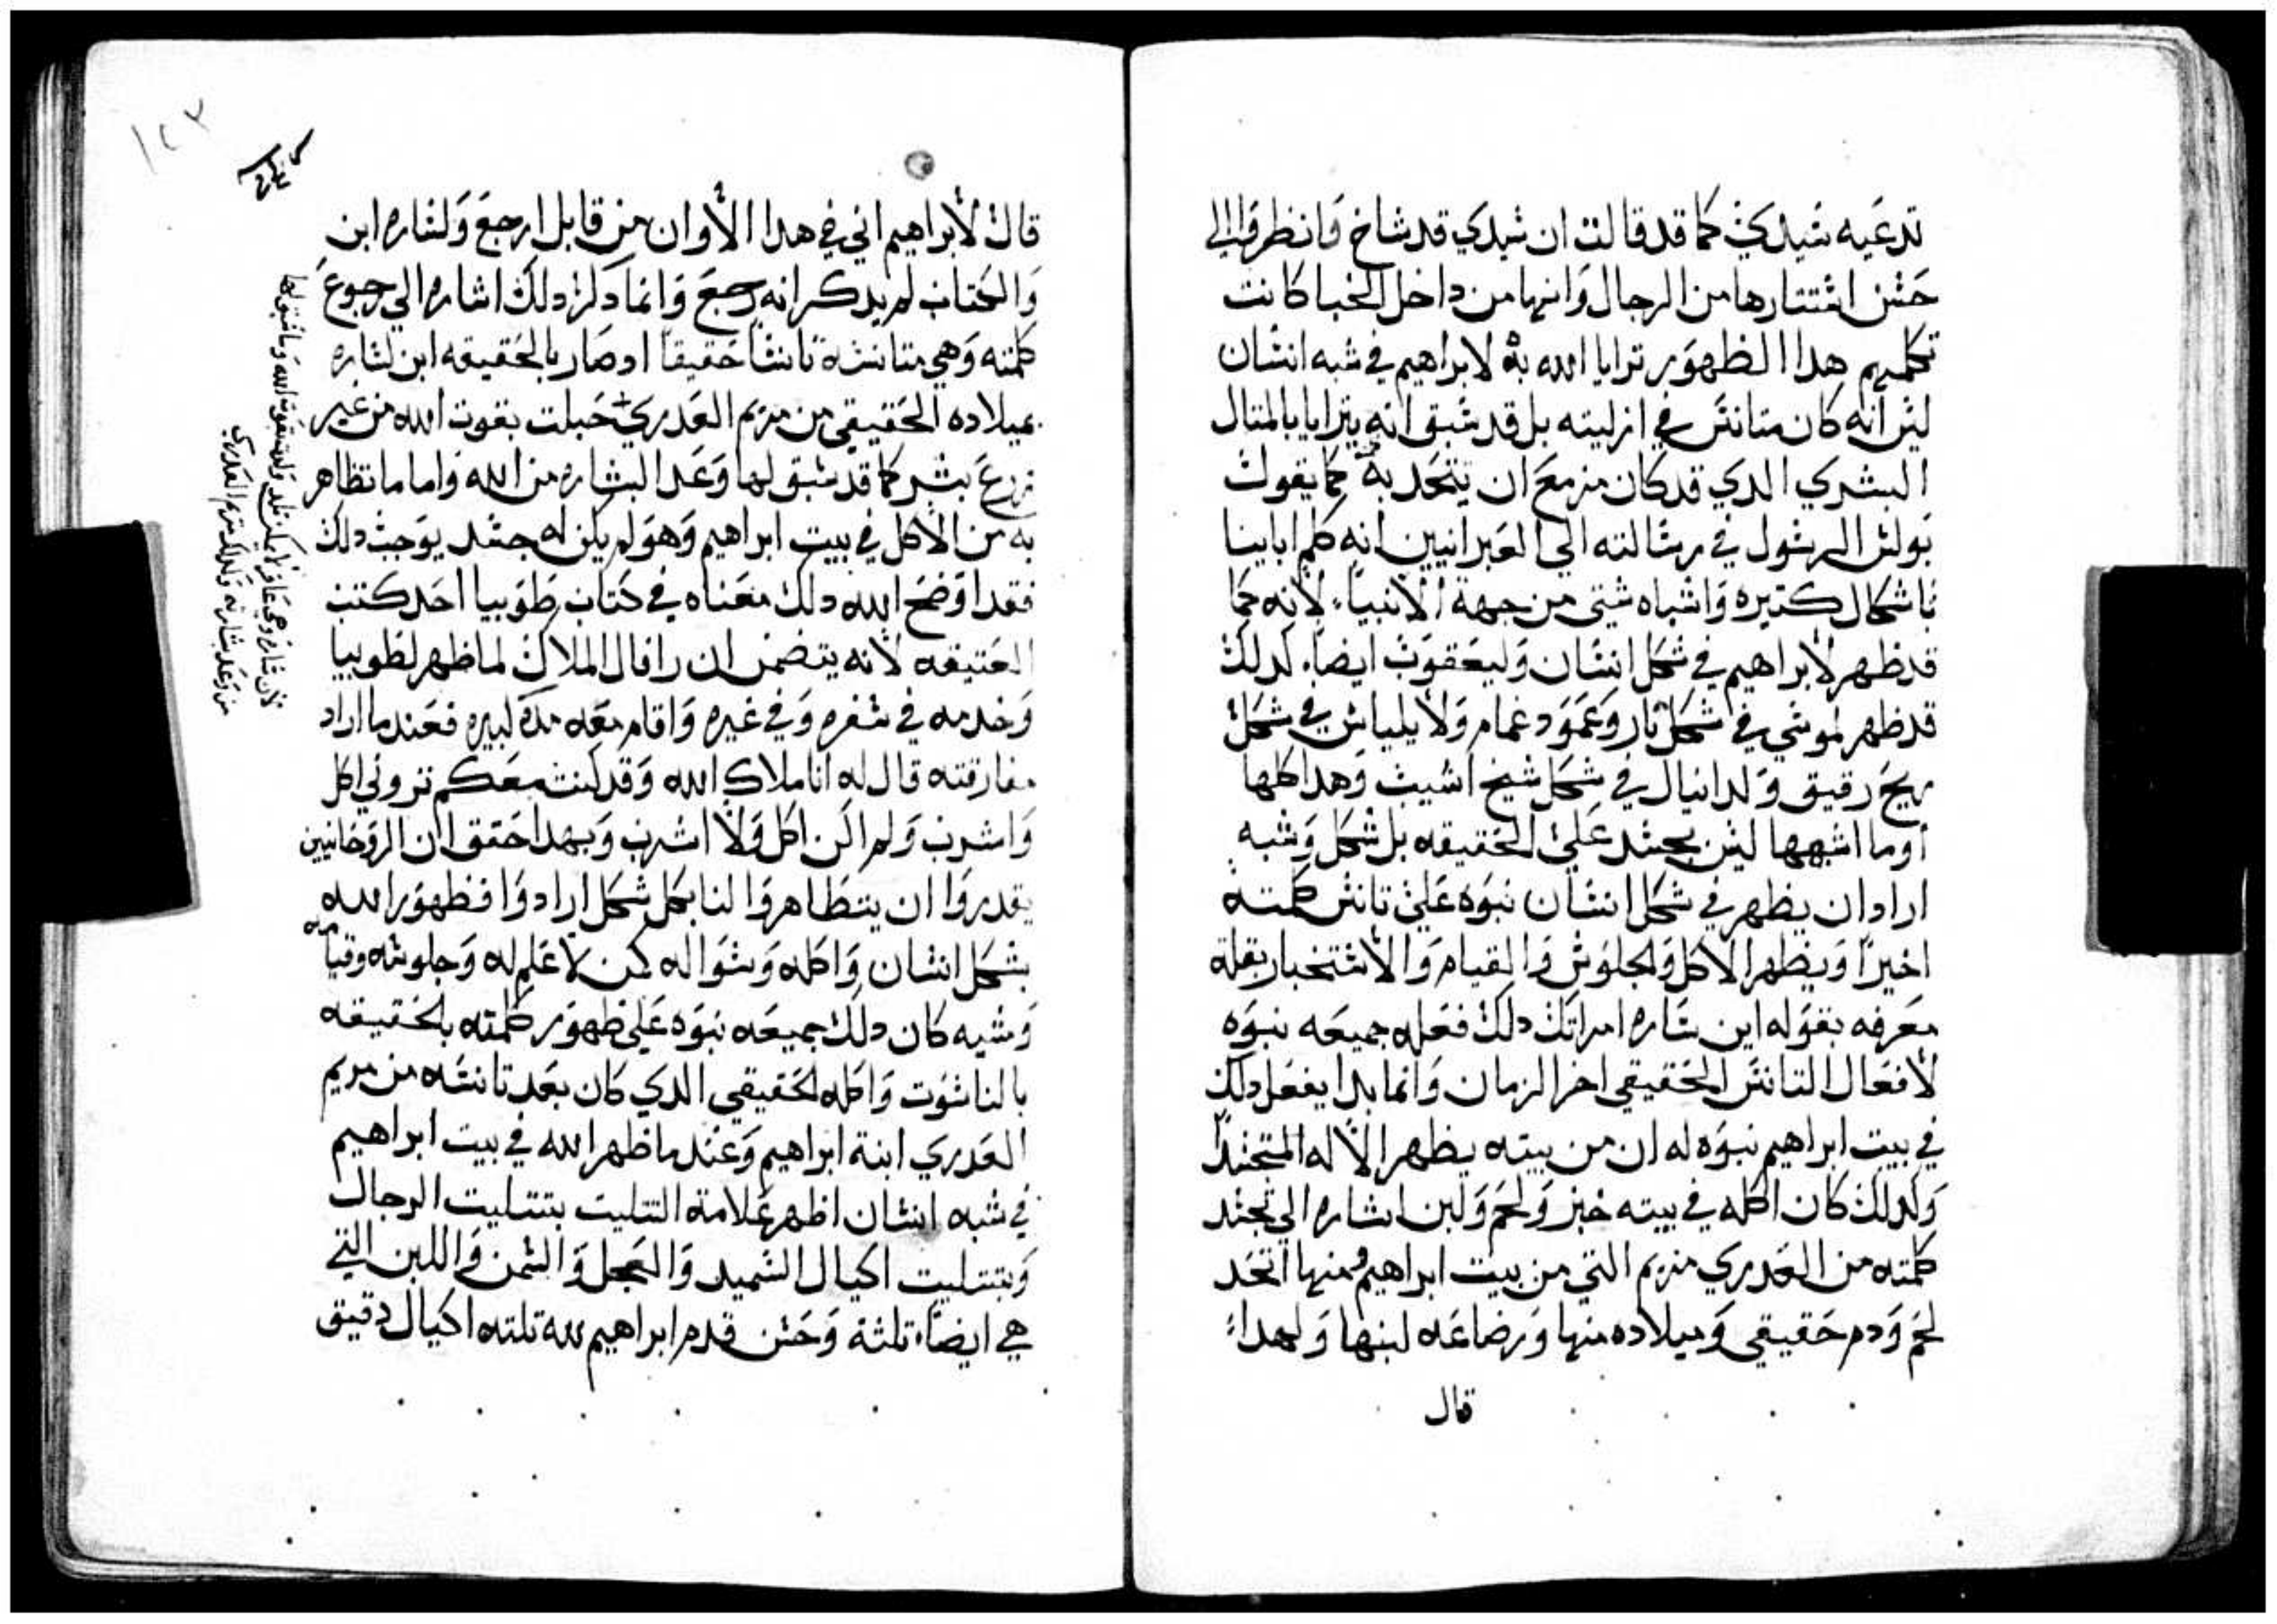 تدعيه شيدي كما قد قالت ان شيدي قد شاخ فانظروا الي
حشن اشتتارها من الرجال وانها من داخل الخبا كانت
تكلمهم هدا الظهور ترايا الله به لابراهيم في شبه انشان
ليش انه كان متانش في ازليته بل قد شبق انه يترايا بالمتال
البشري الدي قد كان مزمع ان يتحد به كما يقول
بولش الرشول في رشالته الي العبرانيين انه كلم اباينا
باشكال كتيره واشباه شتي من جهة الانبيا، لانه كما
قد ظهر لابراهيم في شكل انشان وليعقوب ايضا، لدلك
قد ظهر لموشي في شكل نار وعمود غمام ولايلياش في شكل
ريح رقيق ولدانيال في شكل شيخ اشيب وهدا كلها
اوما اشبهها ليش بجشد علي الحقيقه بل شكل وشبه
اراد ان يظهر في شكل انشان نبوه علي تانش كلمته
اخيرا ويظهر الاكل والجلوش والقيام والاشتخبار بقلة
معرفه بقوله اين شاره امراتك دلك فعله جميعه نبوه
لافعال التانش الحقيقي اخر الزمان وانما بدا يفعل دلك
في بيت ابراهيم نبوه له ان من بيته يظهر الاله المتجشدا
ولدلك كان اكله في بيته خبز ولحم ولبن اشاره الي تجشد
كلمته من العدري مريم التي من بيت ابراهيم ومنها اتحد
لحم ودم حقيقي وميلاده منها ورضاعه لبنها ولهدا
قال
١٢٣
قال لابراهيم اني في هدا الاوان من قابل ارجع ولشاره ابن
والكتاب لم يدكر انه رجع وانما دكر دلك اشاره الي رجوع
كلمته وهي متانشة تانشا حقيقا اد صار بالحقيقه ابن لشاره
بميلاده الحقيقي من مريم العدري حبلت بقوت الله من غير
زرع بشر كما قد شبق لها وعد البشاره من الله واما ما تظاهر
به من الاكل في بيت ابراهيم وهو لم يكن له جشد يوجب دلك
فقد اوضح الله دلك معناه في كتاب طوبيا احد كتب
العتيقه لانه يتضمن ان رافال الملاك لما ظهر لطوبيا
وخدمه في شفره وفي غيره واقام معه مده كبيره فعندما اراد
مفارقته قال له انا ملاك الله وقد كنت معكم تروني اكل
واشرب ولم اكن اكل ولا اشرب وبهدا حقق ان الروحانيين
يقدروا ان يتظاهروا لنا بكل شكل ارادوا فظهور الله
بشكل انشان واكله وشواله كمن لا علم له وجلوشه وقيامه
ومشيه كان دلك جميعه نبوه علي ظهور كلمته بالحقيقه
بالناشوت واكله الحقيقي الدي كان بعد تانشه من مريم
العدري ابنة ابراهيم وعند ما ظهر الله في بيت ابراهيم
في شبه انشان اظهر علامة التتليت بتتليت الرجال
وبتتليت اكيال الشميد والعجل والشمن واللبن التي
هي ايضا، تلثة وحشن قدم ابراهيم لله تلته اكيال دقيق
لان شاره وهي عاقر لم يكن تلد ولدت بقوت الله وما شبق لها
من وعد شارته وكدلك مريم العدري